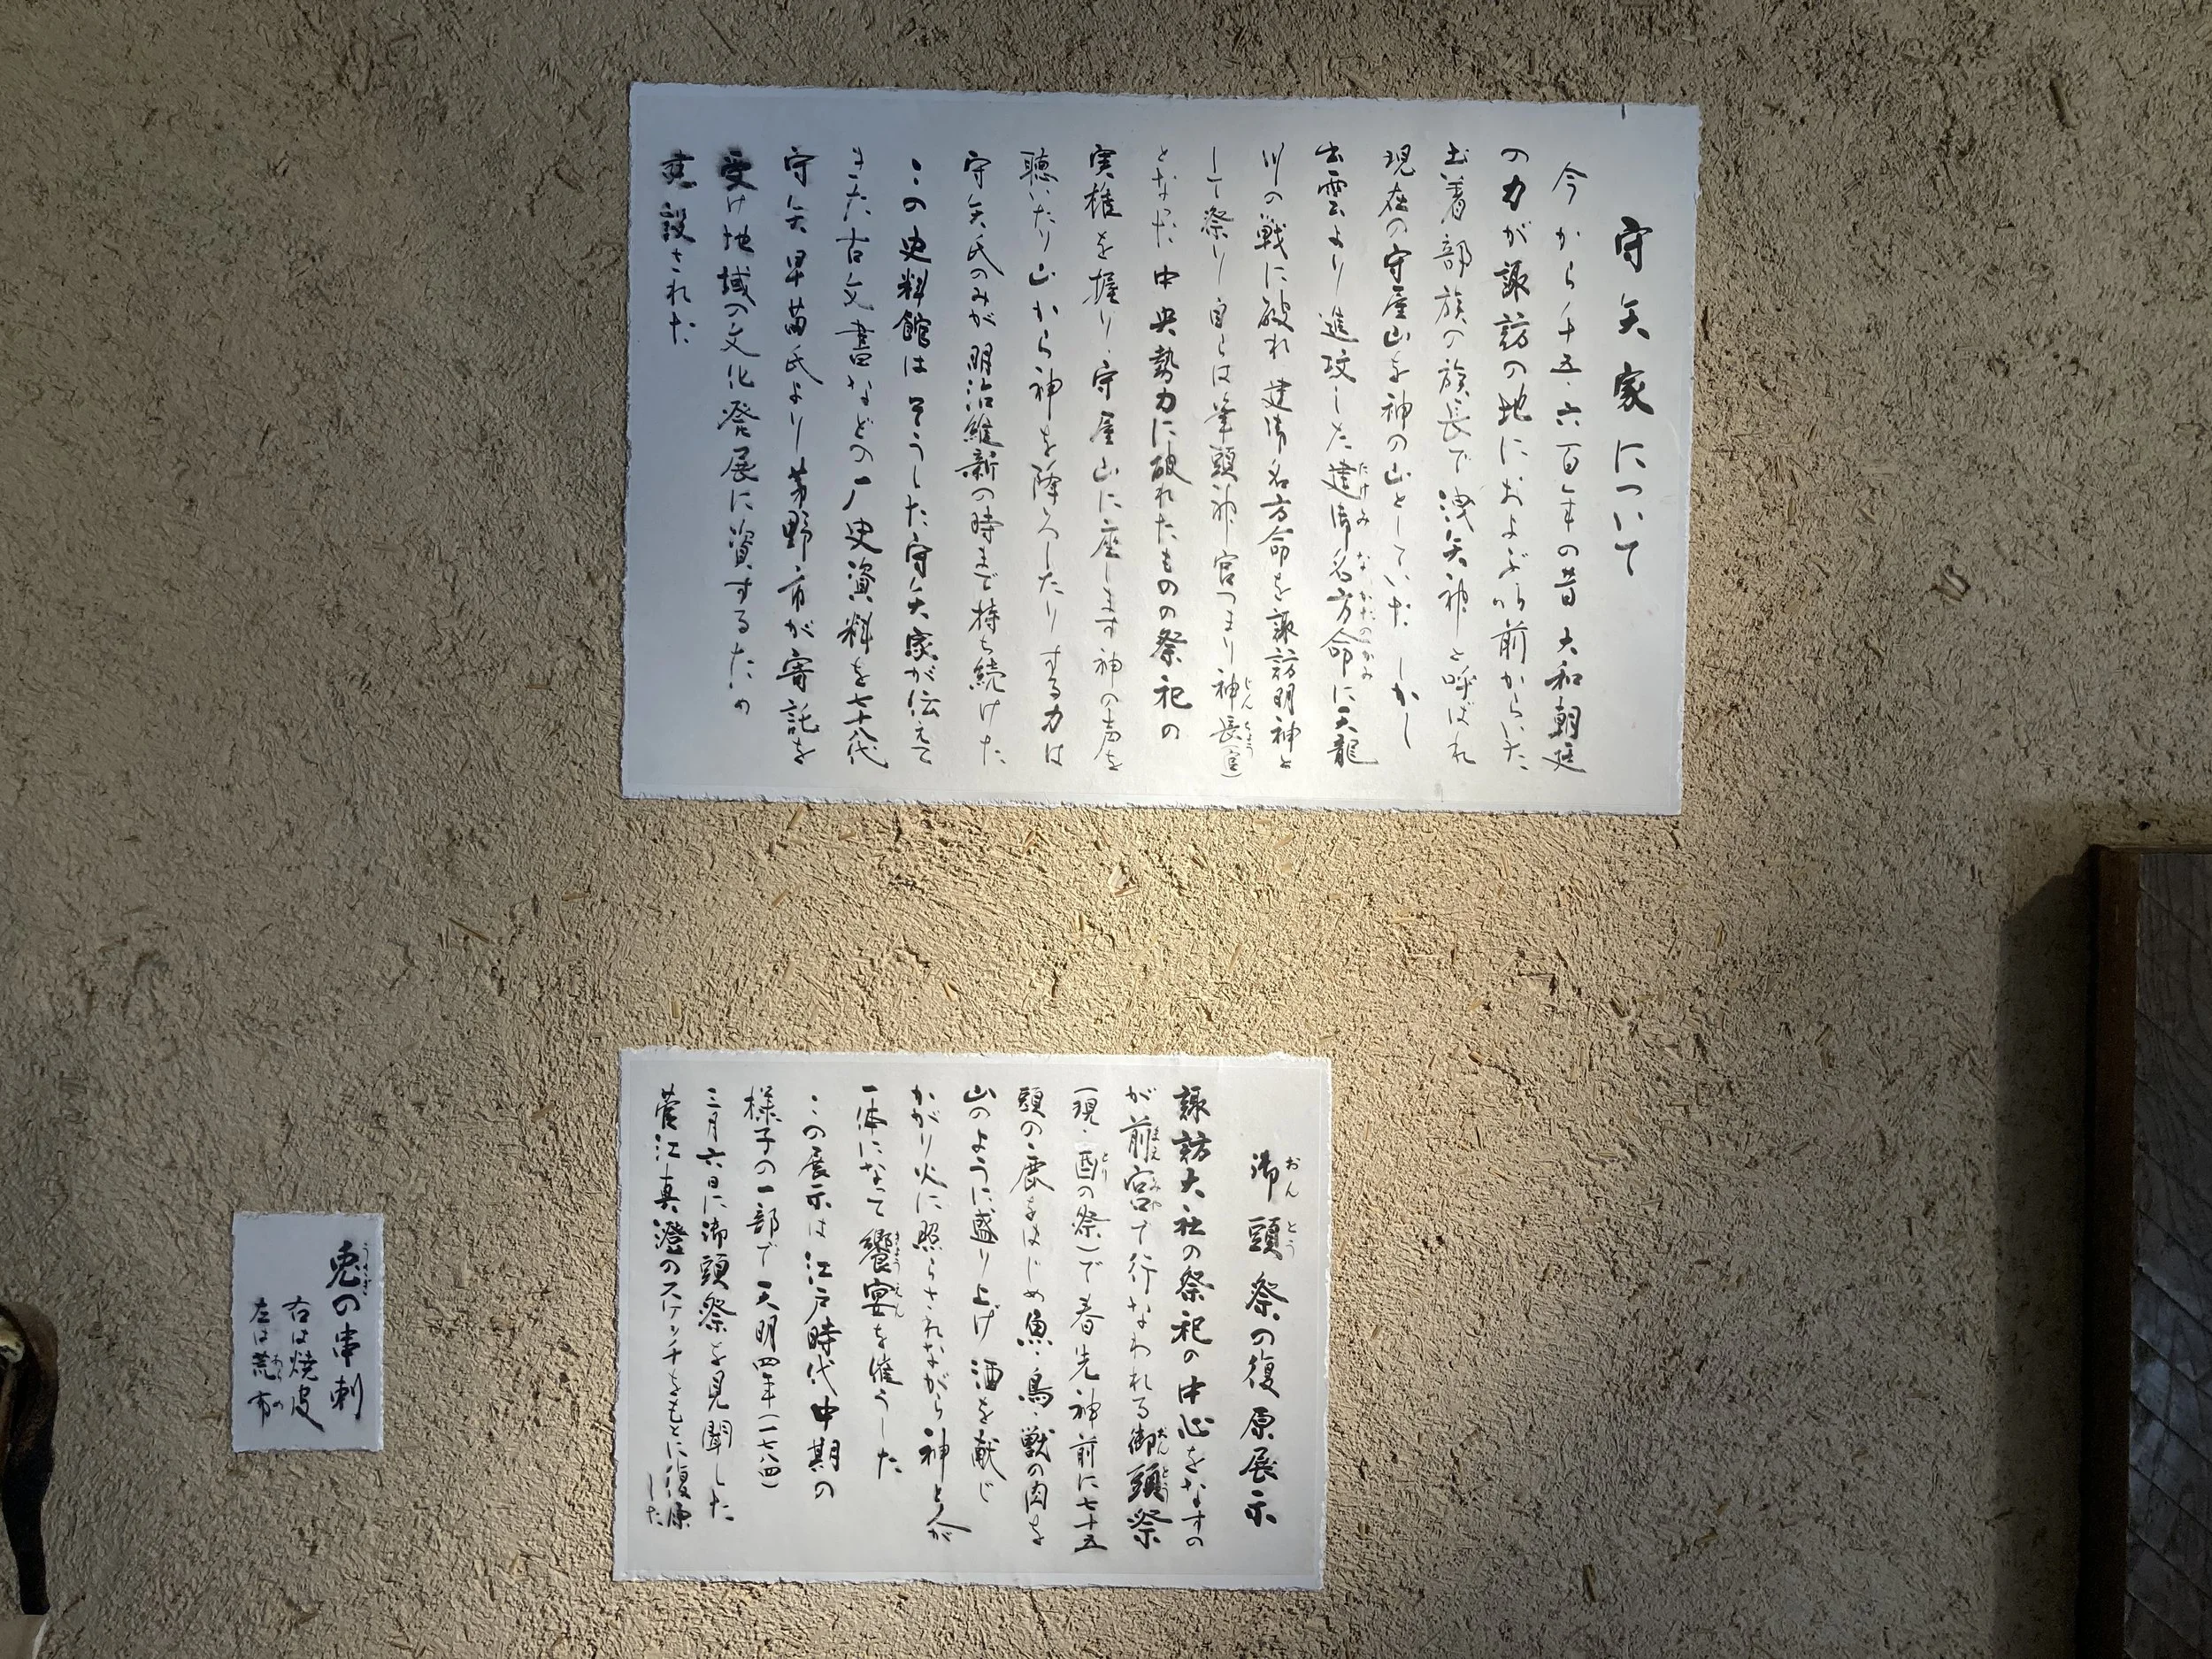 守矢家について
今から千五・六百年の昔 大和朝廷
の力が諏訪の地におよぶ以前からいた
土着部族の族長で 洩矢神と呼ばれ
現在の守屋山を神の山としていた しかし
出雲より進攻した建御名方命に天龍
たけみなかたのかみ
川の戦に破れ 建御名方命を諏訪明神と
して祭り 自らは筆頭神官つまり神長(官)
じんちょう
となった 中央勢力に破れたものの祭祀の
実権を握り、守屋山に座します神の声を
聴いたり山から神を降ろしたりする力は
守矢氏のみが明治維新の時まで持ち続けた
この史料館は そうした守矢家が伝えて
きた古文書などの歴史資料を七十八代
守矢早苗氏より茅野市が寄託を
受け地域の文化発展に資するため
建設された
御頭祭の復原展示
おんとう
諏訪大社の祭祀の中心をなすの
が前宮で行なわれる御頭祭
まえみや おんとう
(現・酉の祭)で春先神前に七十五
とり
頭の鹿をはじめ魚・鳥・獣の肉を
山のように盛り上げ 酒を献じ
かがり火に照らされながら神と人が
一体になって饗宴を催うした
きょうえん
この展示は 江戸時代中期の
様子の一部で 天明四年(一七八四)
三月六日に御頭祭を見聞した
菅江真澄のスケッチをもとに復原
した
兎の串刺
うさぎ
右は焼皮
左は荒布
あらめ